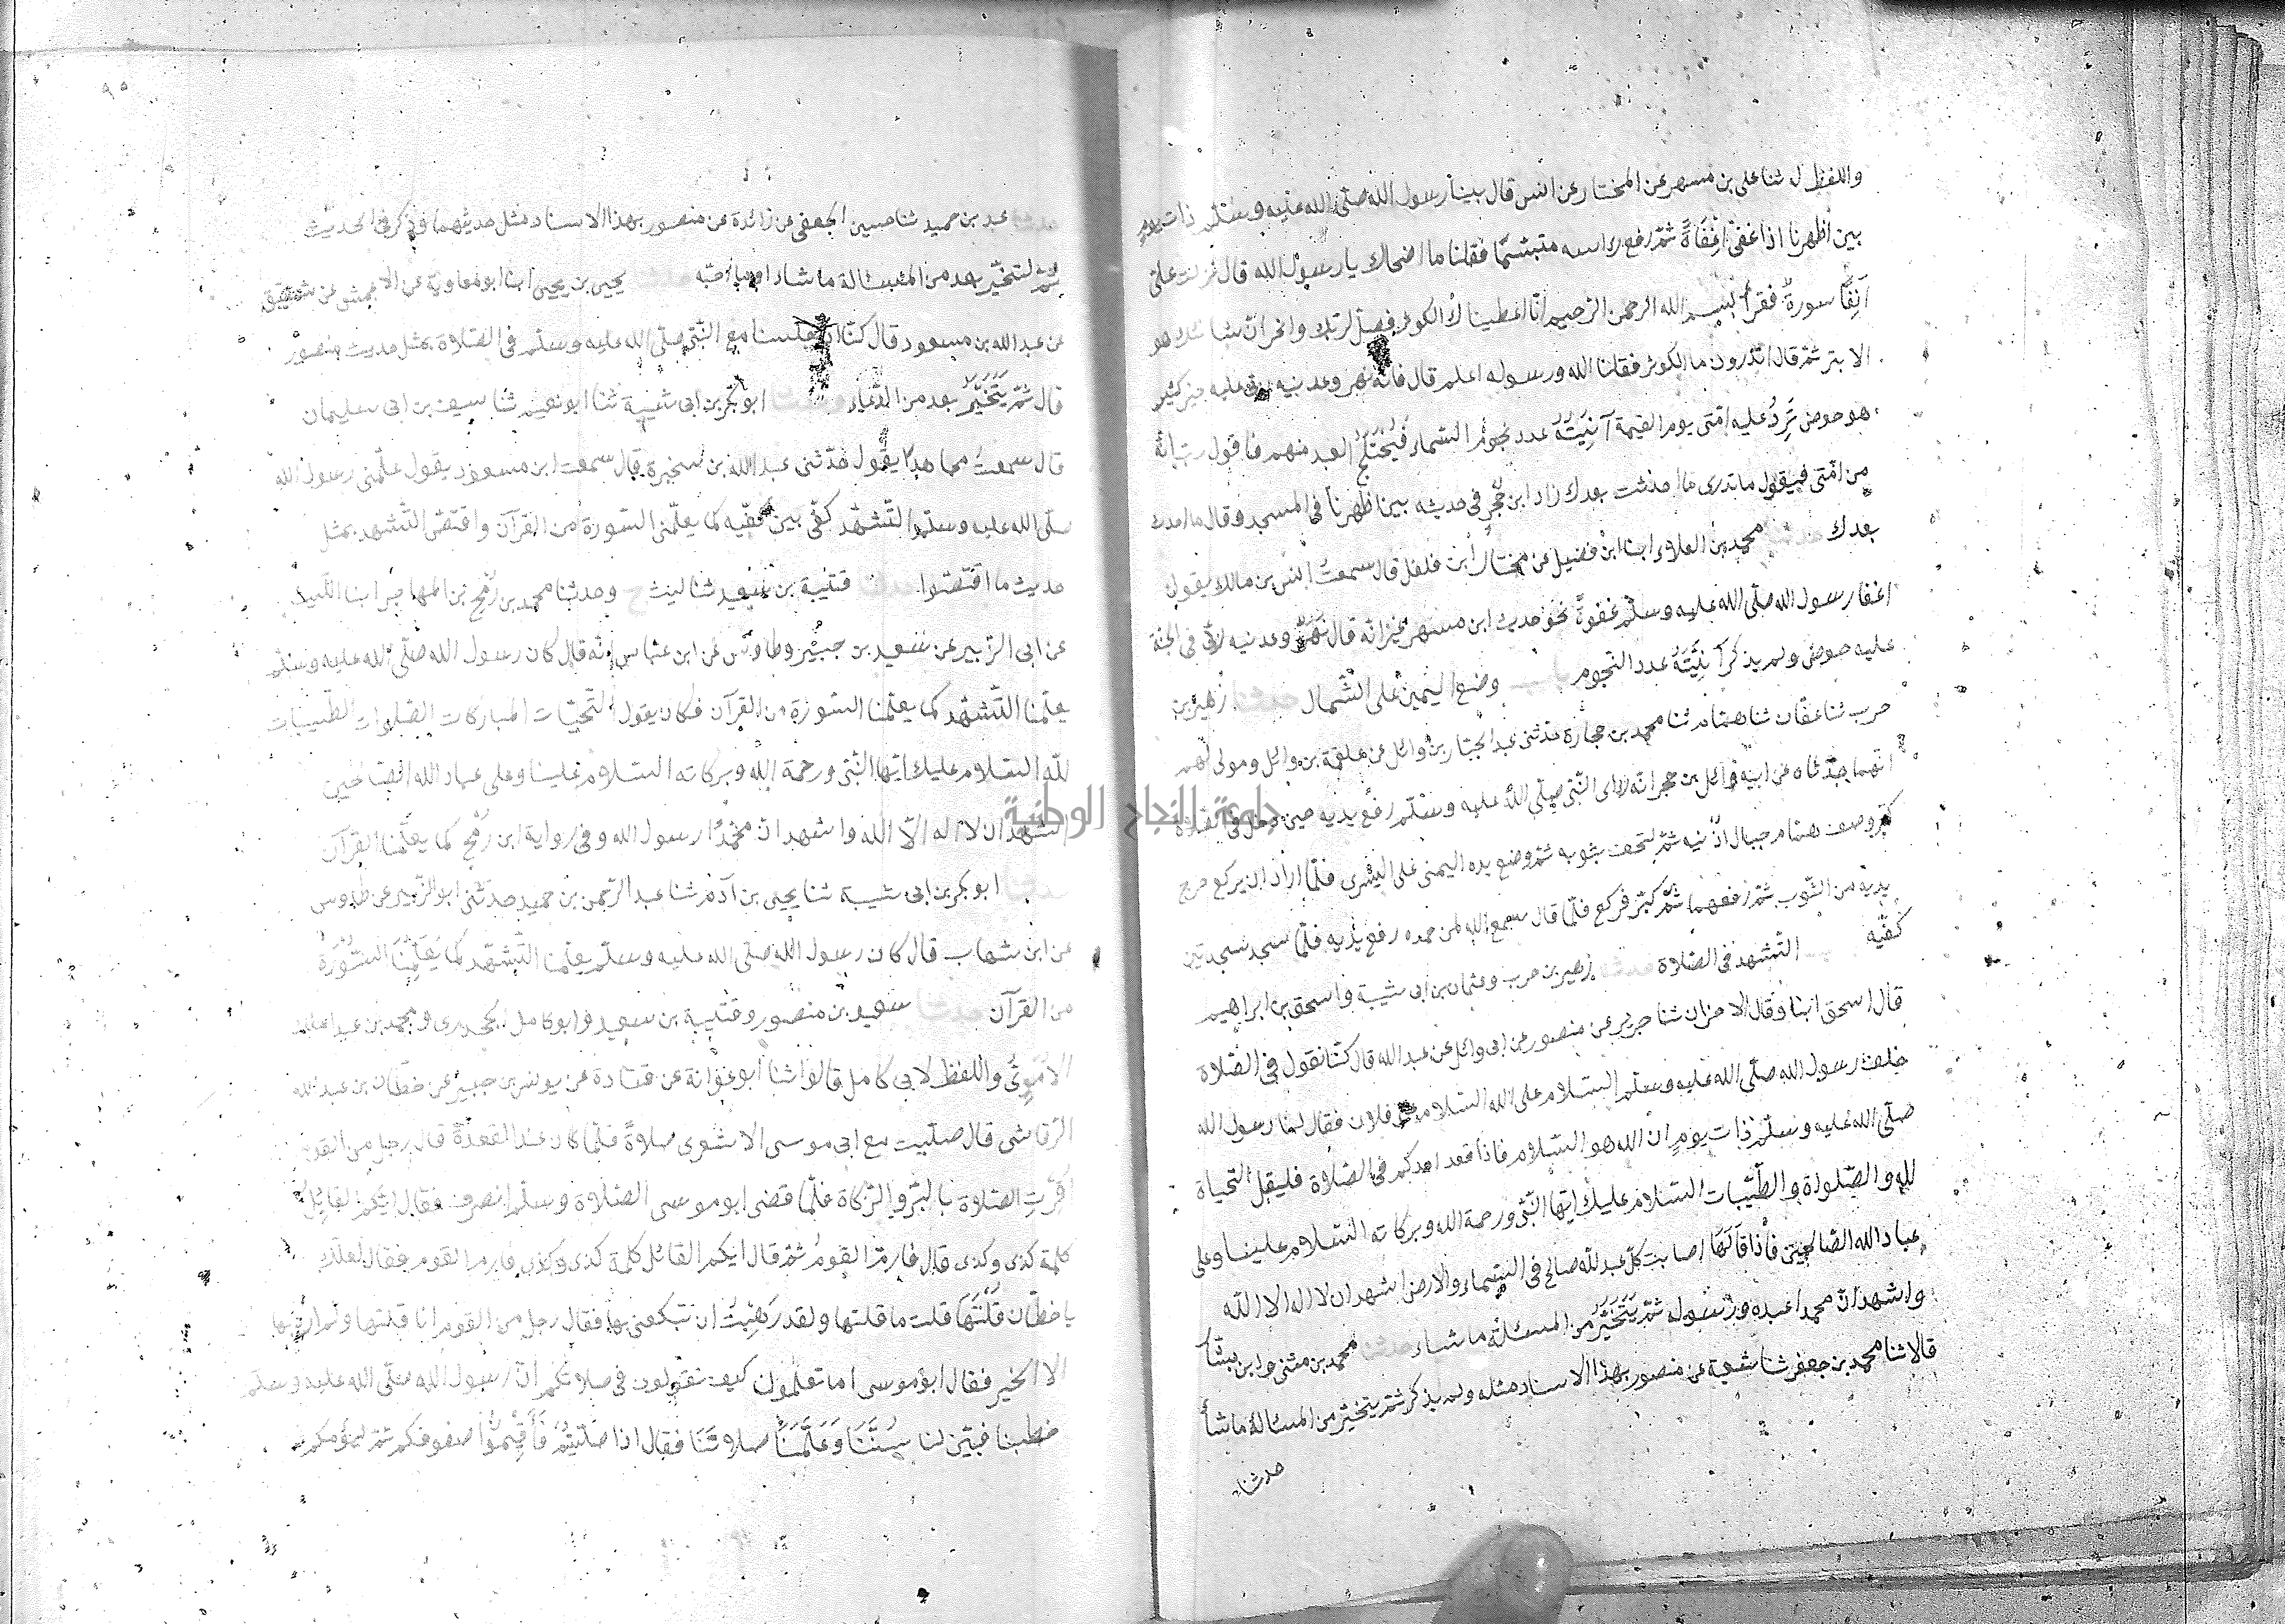 واللفظ ل ثنا على بن مسهر عن المختار عن انس قال بينا رسول الله صلى الله عليه وسلم ذات يوم
بين اظهرنا اذا غفى اغفاةً ثم رفع راسه متبسمًا فقلنا ما اضحاك يا رسول الله قال نزلت على
آنفًا سورةٌ فقرأ بسم الله الرحمن الرحيم انا اعطيناك الكوثر فصل لربك وانحر ان شانئك هو
الابتر ثم قال اتدرون ما الكوثر فقلنا الله ورسوله اعلم قال فانه نهر وعدنيه ربى عليه خير كثير
هو حوض تَرِدُ عليه امتى يوم القيمة آنِيَتُهُ عدد نجوم السماء فيُخْتَلَجُ العبد منهم فاقول رب انه
من امتى فيقول ما تدرى ما احدثت بعدك زاد ابن حُجرٍ فى حديثه بين اظهرنا فى المسجد وقال ما احدث
بعدك حدثنا محمد بن العلاء ابنا ابن فضيل عن مختار ابن فلفل قال سمعت انس بن مالك يقول
اغفا رسول الله صلى الله عليه وسلم غفوةً نحو حديث ابن مسهر غير انه قال نَهَرٌ وعدنيه ربى فى الجنة
عليه حوض ولم يذكر آنِيَتُهُ عدد النجوم باب وضع اليمين على الشمال حدثنا زهير بن
حرب ثنا عفان ثنا همام ثنا محمد بن حجارة حدثنى عبد الجبار بن وائل عن علقمة بن وائل ومولى لهم
انهما حدثاه عن ابيه وائل بن حجر انه راى النبى صلى الله عليه وسلم رفع يديه حين دخل فى الصلاة
كبر وصف همام حيال اذنيه ثم التحف بثوبه ثم وضع يده اليمنى على اليسرى فلما اراد ان يركع اخرج
يديه من الثوب ثم رفعهما ثم كبر فركع فلما قال سمع الله لمن حمده رفع يديه فلما سجد سجد بين
كفيه باب التشهد فى الصلاة حدثنا زهير بن حرب وعثمان بن ابى شيبة واسحق بن ابراهيم
قال اسحق ابنا وقال الاخران ثنا جرير عن منصور عن ابى وائل عن عبد الله قال كنا نقول فى الصلاة
خلف رسول الله صلى الله عليه وسلم السلام على الله السلام على فلان فقال لنا رسول الله
صلى الله عليه وسلم ذات يوم ان الله هو السلام فاذا قعد احدكم فى الصلاة فليقل التحياة
لله والصلوة والطيبات السلام عليك ايها النبى ورحمة الله وبركاته السلام علينا وعلى
عباد الله الصالحين فاذا قَالَهَا اصابت كل عبد لله صالح فى السماء والارض اشهد ان لا اله الا الله
واشهد ان محمدا عبده ورسوله ثم يَتَخَيَّرُ من المسئلة ما شاء حدثنا محمد بن مثنى وابن بشار
قالا ثنا محمد بن جعفر ثنا شعبة عن منصور بهذا الاسناد مثله ولم يذكر ثم يتخير من المسئالة ما شأ
حدثنا
٩٥
حدثنا عبد بن حميد ثنا حسين الجعفى عن زائدة عن منصور بهذا الاسناد مثل حديثهما وذكر فى الحديث
ثم ليتخير بعد من المسئالة ما شاء او ما احبّ حدثنا يحيى بن يحيى ابنا ابو معاوية عن الاعمش عن شقيق
عن عبد الله بن مسعود قال كنا اذا جلسنا مع النبى صلى الله عليه وسلم فى الصلاة بمثل حديث منصور
قال ثم يَتَخَيَّرُ بعد من الدعاء وحدثنا ابو بكر بن ابى شيبة ثنا ابو نعيم ثنا سيف بن ابى سليمان
قال سمعت مجاهدا يقول حدثنى عبد الله بن سخبرة قال سمعت ابن مسعود يقول علمنى رسول الله
صلى الله عليه وسلم التشهد كفى بين كفيه كما يعلمنى السورة من القرآن واقتص التشهد بمثل
حديث ما اقتصوا حدثنا قتيبة بن سعيد ثنا ليث ح وحدثنا محمد بن رُمْح بن المهاجر ابنا الليث
عن ابى الزبير عن سعيد بن جبير وطاوس عن ابن عباس انه قال كان رسول الله صلى الله عليه وسلم
يعلمنا التشهد كما يعلمنا السورة من القرآن فكان يقول التحيات المباركات الصلوات الطيبات
لله السلام عليك ايها النبى ورحمة الله وبركاته السلام علينا وعلى عباد الله الصالحين
اشهد ان لا اله الا الله واشهد ان محمدًا رسول الله وفى رواية ابن رُمْح كما يعلمنا القرآن
حدثنا ابو بكر بن ابى شيبة ثنا يحيى بن آدم ثنا عبد الرحمن بن حميد حدثنى ابو الزبير عن طاوس
عن ابن شهاب قال كان رسول الله صلى الله عليه وسلم يعلمنا التشهد كما يُعَلِّمُنَا السُّورَةَ
من القرآن حدثنا سعيد بن منصور وقتيبة بن سعيد وابو كامل الجحدرى ومحمد بن عبد الملك
الاموى واللفظ لابى كامل قالوا ثنا ابو عوانة عن قتادة عن يونس بن جبير عن حطان بن عبد الله
الرقاشى قال صليت مع ابى موسى الاشعرى صلاةً فلما كان عند القعدة قال رجل من القوم
اقرت الصلاة بالبر والزكاة فلما قضى ابو موسى الصلاة وسلم انصرف فقال ايكم القائل
كلمة كذى وكذى قال فارم القوم ثم قال ايكم القائل كلمة كذى وكذى فارم القوم فقال لعلك
يا حطان قُلْتَهَا قلت ما قلتها ولقد رَهِبْتُ ان تبكعنى بها فقال رجل من القوم انا قلتها ولم ارد بها
الا الخير فقال ابو موسى اما تعلمون كيف تقولون فى صلاتكم ان رسول الله صلى الله عليه وسلم
خطبنا فبين لنا سُنَّتَنَا وَعَلَّمَنَا صلاتَنَا فقال اذا صَلَّيْتُمْ فَأَقِيمُوا صفوفكم ثم ليؤمكم
جامعة النجاح الوطنية